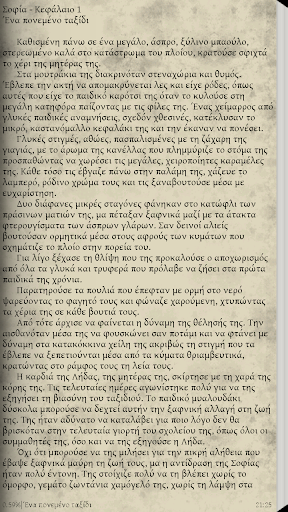 Σοφία - Κεφάλαιο 1
Ένα πονεμένο ταξίδι
Καθισμένη πάνω σε ένα μεγάλο, άσπρο, ξύλινο μπαούλο,
στερεωμένο καλά στο κατάστρωμα του πλοίου, κρατούσε σφιχτά
το χέρι της μητέρας της.
Στα μουτράκια της διακρινόταν στεναχώρια και θυμός.
Έβλεπε την ακτή να απομακρύνεται λες και είχε ρόδες, όπως
αυτές που είχε το παιδικό καρότσι της όταν το κυλούσε στη
μεγάλη κατηφόρα παίζοντας με τις φίλες της. Ένας χείμαρρος από
γλυκές παιδικές αναμνήσεις, σχεδόν χθεσινές, κατέκλυσαν το
μικρό, καστανόμαλλο κεφαλάκι της και την έκαναν να πονέσει.
Γλυκές στιγμές, αθώες, πασπαλισμένες με τη ζάχαρη της
γιαγιάς, με το άρωμα της κανέλλας που πλημμύριζε το στόμα της
προσπαθώντας να χωρέσει τις μεγάλες, χειροποίητες καραμέλες
της. Κάθε τόσο τις έβγαζε πάνω στην παλάμη της, χάζευε το
λαμπερό, ρόδινο χρώμα τους και τις ξαναβουτούσε μέσα με
ευχαρίστηση.
Δυο διάφανες μικρές σταγόνες φάνηκαν στο κατώφλι των
πράσινων ματιών της, μα πέταξαν ξαφνικά μαζί με τα άτακτα
φτερουγίσματα των άσπρων γλάρων. Σαν δεινοί αλιείς
βουτούσαν ορμητικά μέσα στους αφρούς των κυμάτων που
σχημάτιζε το πλοίο στην πορεία του.
Για λίγο ξέχασε τη θλίψη που της προκαλούσε ο αποχωρισμός
από όλα τα γλυκά και τρυφερά που πρόλαβε να ζήσει στα πρώτα
παιδικά της χρόνια.
Παρατηρούσε τα πουλιά που έπεφταν με ορμή στο νερό
ψαρεύοντας το φαγητό τους και φώναζε χαρούμενη, χτυπώντας
τα χέρια της σε κάθε βουτιά τους.
Από τότε άρχισε να φαίνεται η δύναμη της θέλησής της. Την
αισθανόταν μέσα της να φουσκώνει σαν ποτάμι και να φτάνει με
δύναμη στα κατακόκκινα χείλη της ακριβώς τη στιγμή που τα
έβλεπε να ξεπετιούνται μέσα από τα κύματα θριαμβευτικά,
κρατώντας στο ράμφος τους τη λεία τους.
Η καρδιά της Λήδας, της μητέρας της, σκίρτησε με τη χαρά της
κόρης της. Τις τελευταίες ημέρες αγωνίστηκε πολύ για να της
εξηγήσει τη βιασύνη του ταξιδιού. Το παιδικό μυαλουδάκι
δύσκολα μπορούσε να δεχτεί αυτήν την ξαφνική αλλαγή στη ζωή
της. Της ήταν αδύνατο να καταλάβει για ποιο λόγο δεν θα
βρισκόταν στην τελευταία γιορτή του σχολείου της, όπως όλοι οι
συμμαθητές της, όσο και να της εξηγούσε η Λήδα.
Όχι ότι μπορούσε να της μιλήσει για την πικρή αλήθεια που
έβαψε ξαφνικά μαύρη τη ζωή τους, μα η αντίδραση της Σοφίας
ήταν πολύ έντονη. Της στοίχιζε πολύ να τη βλέπει χωρίς το
όμορφο, γεμάτο ζωντάνια χαμόγελό της, χωρίς τη λάμψη στα
Ένα πονεμένο ταξίδι